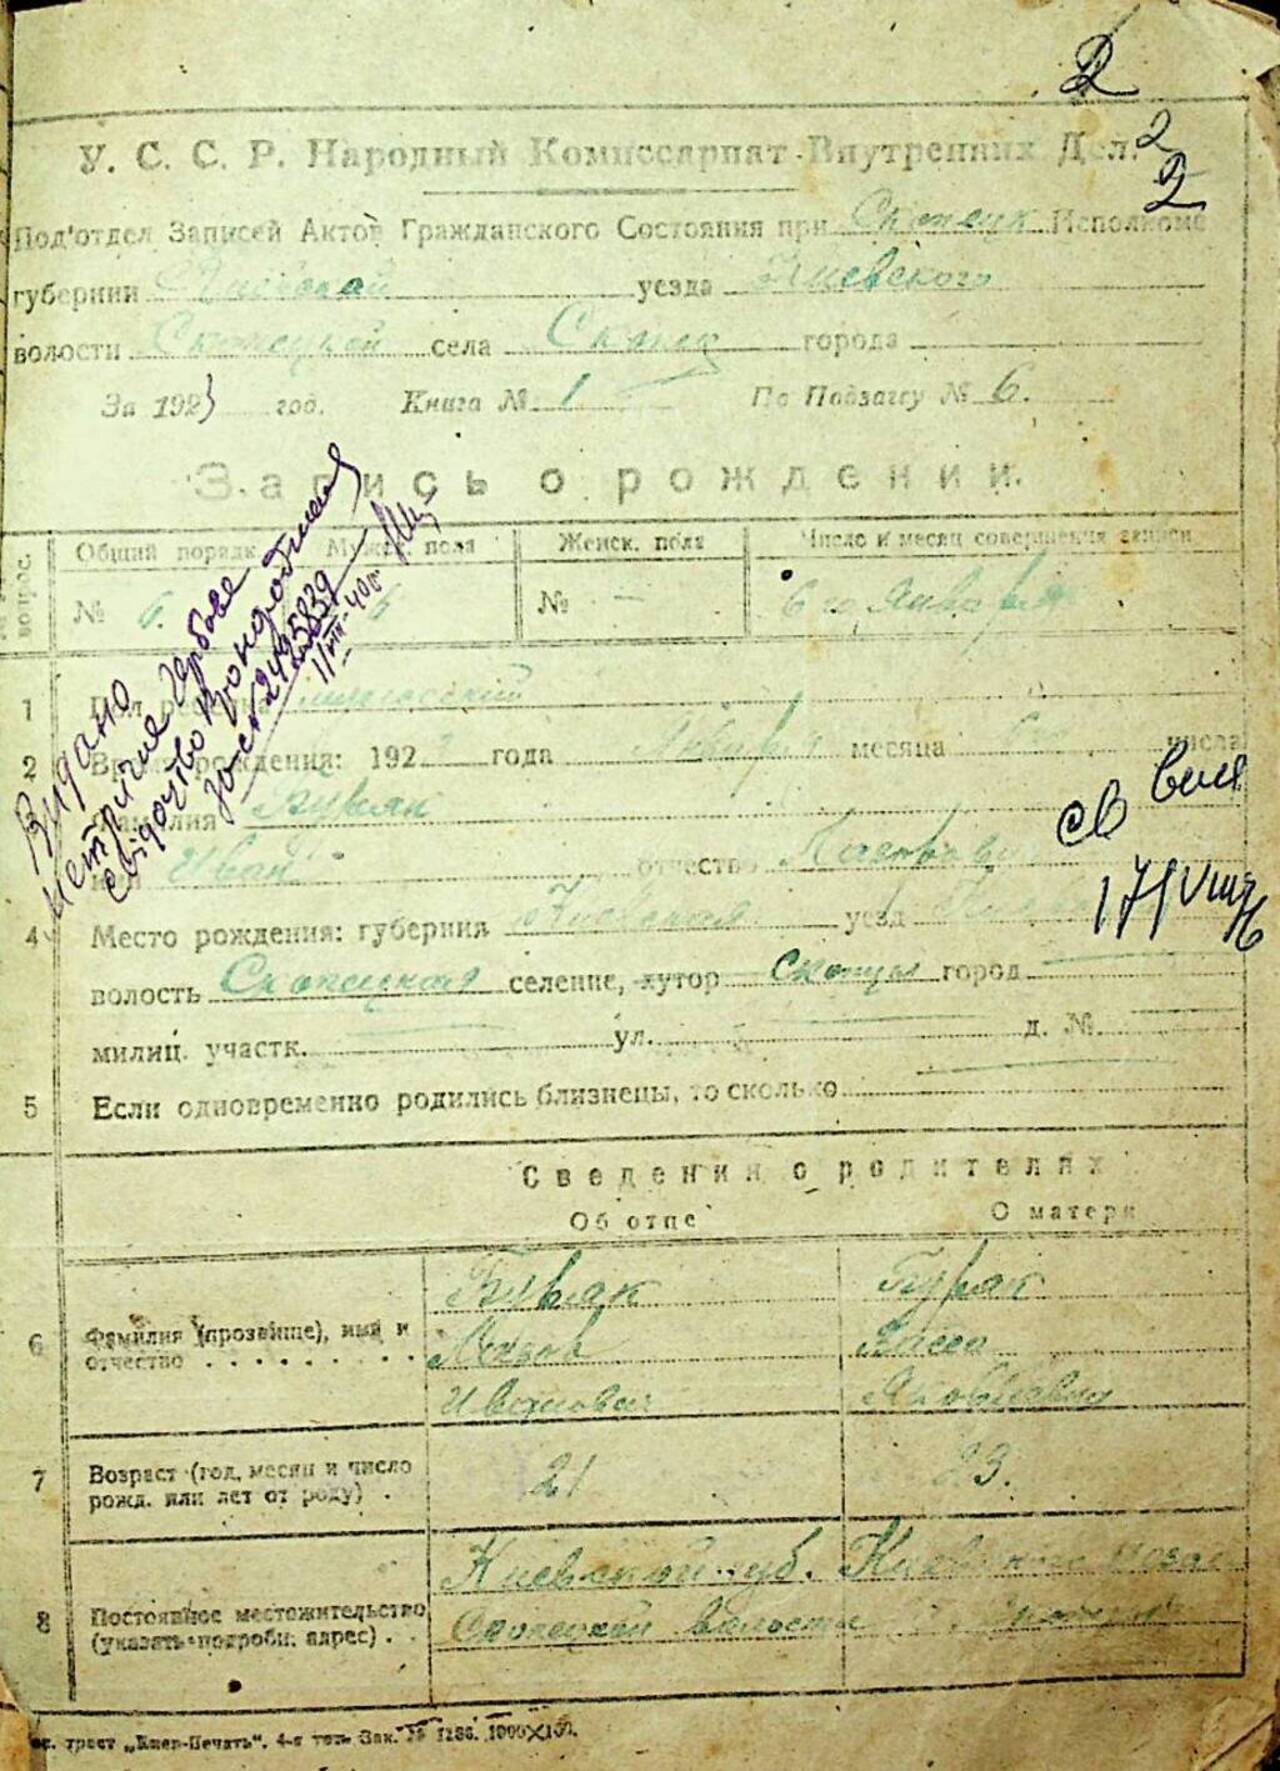 2
2
2
У. С. С. Р. Народный Комиссариат Внутренних Дел.
Под'отдел Записей Актов Гражданского Состояния при Скопецк Исполкоме
губернии Киевской уезда Киевского
волости Скопецкой села Скопец города
За 1923 год. Книга № 1 По Подзагсу № 6.
Запись о рождении.
вопрос. Общий порядк. Мужск. пола Женск. поля Число и месяц совершения записи
№ 6. 6 № — 6 го Января
1 Пол ребенка мужеский
2 Время рождения: 192 года Января месяца 6го числа
Фамилия Буряк
имя Иван отчество
4 Место рождения: губерния Киевская уезд
волость Скопецкая селение, хутор Скопцы город
милиц. участк. ул. д. №
5 Если одновременно родились близнецы, то сколько
Видано
метричне
свідоцтво
11/VIII-40р
св
17/VIII
Сведения о родителях
Об отце О матери
Буряк Буряк
6 Фамилия (прозвище), имя и
отчество . . . . . . . . .
Иванович Яковлевна
7 Возраст (год, месяц и число
рожд. или лет от роду) .
21 23.
Киевской губ. Киевского уезда
8 Постоянное местожительство
(указать подробн. адрес) . .
Скопецкой волости
трест „Киев-Печать". 4-я тип. Зак. № 1286. 1000×100.